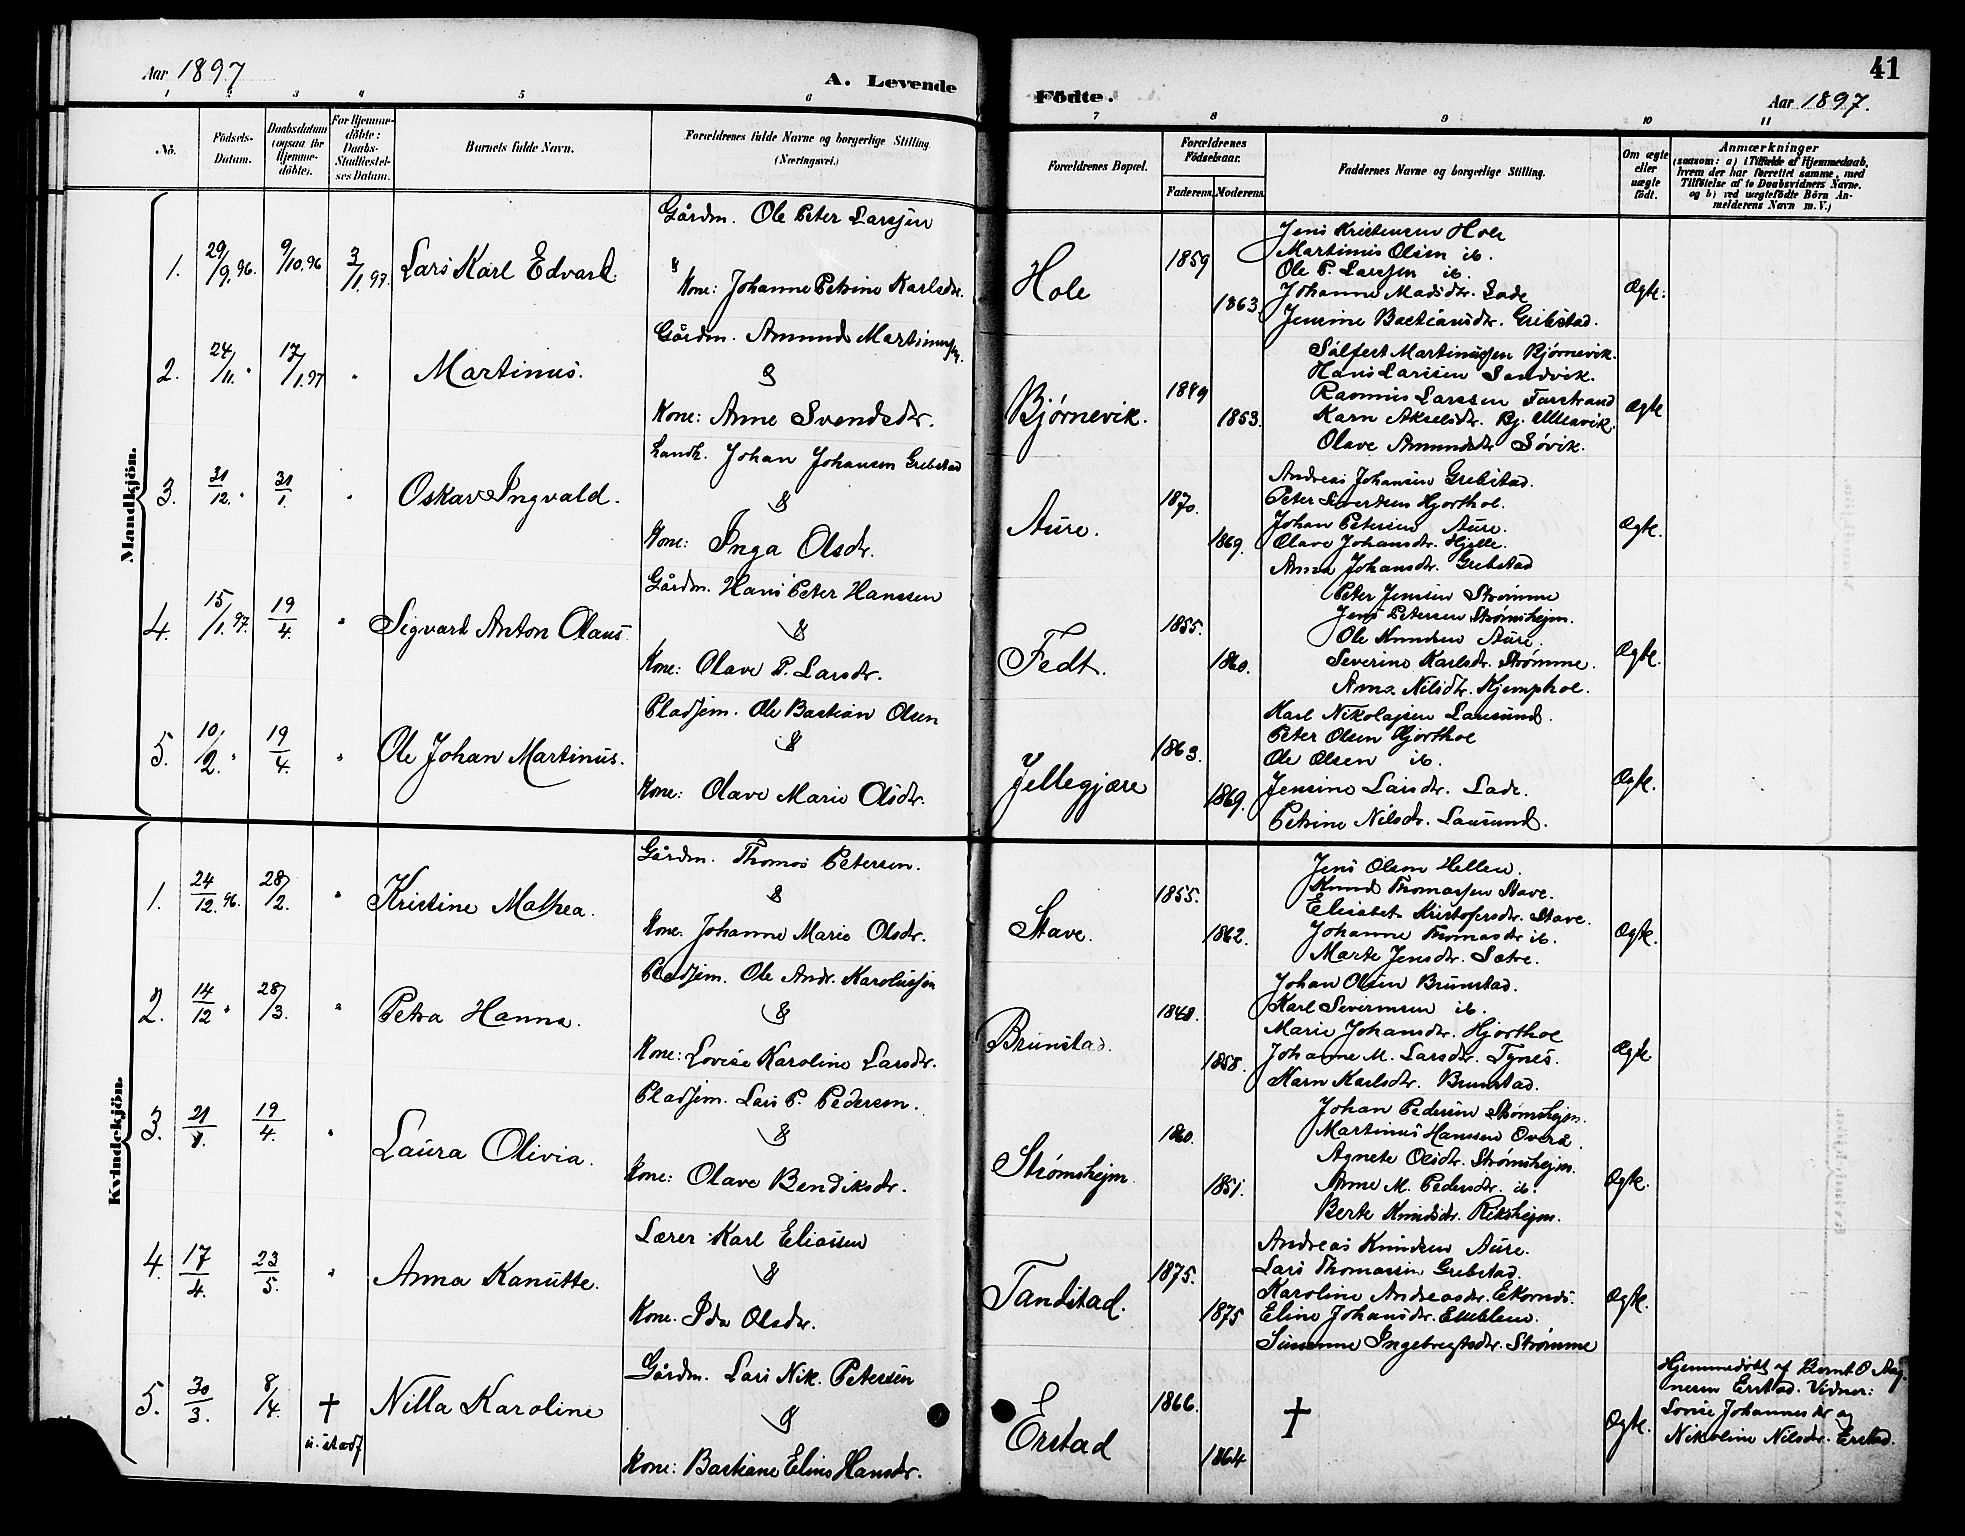 Aar 1897
A. Levende
Födte.
41
Aar 1897.
1 2 3 4 5 6 7 8 9 10 11
No.
Födsels-Datum.
Daabsdatum (ogsaa for Hjemme-döbte).
For Hjemme-döbte: Daabs-Stadfæstel-ses Datum.
Barnets fulde Navn.
Forældrenes fulde Navne og borgerlige Stilling (Næringsvei.)
Forældrenes Bopæl.
Forældrenes Födselsaar.
Faderens. Moderens.
Faddernes Navne og borgerlige Stilling.
Om ægte eller uægte födt.
Anmærkninger
(saasom: a) i Tilfælde af Hjemmedaab, hvem der har forrettet samme, med Tilföielse af to Daabsvidners Navne, og b) ved uægtefödte Börn An-melderens Navn m. V.)
Mandkjön.
1. 29/9.96. 9/10.96 3/1.97. Lars Karl Edvard.
Gårdm. Ole Peter Larssen
&
Kone: Johanne Petrine Karlsdtr.
Hole 1859 1863.
Jens Kristensen Hole
Martinus Olsen ib.
Ole P. Larssen ib.
Johanne Madsdtr. Lade
Jensine Bastiansdtr. Grebstad.
Ægte.
2. 24/11. " 17/1.97 " Martinus.
Gårdm. Amund Martinussen.
&
Kone: Anne Svendsdtr.
Bjørnevik. 1849 1853.
Sølfert Martinussen Bjørnevik.
Hans Larssen Sandvik.
Rasmus Larssen Farstrand
Karn Akselsdtr. Bj.
Olave Amundsdtr Søvik.
Ægte
3. 31/12. " 31/1. " Oskar Ingvald.
Landh. Johan Johansen Grebstad
&
Kone: Inga Olsdtr.
Aure. 1870. 1869.
Andreas Johansen Grebstad.
Peter Sivertsen Hjorthol.
Johan Petersen Aure.
Olave Johansdtr. Hjelle.
Anna Johansdtr. Grebstad
Ægte.
4. 15/1.97. 19/4. " Sigvart Anton Olaus.
Gårdm. Hans Peter Hanssen
&
Kone: Olave P. Larsdtr.
Fedt. 1855. 1860.
Peter Jensen Strømme
Jens Petersen Strømshejm.
Ole Knudsen Aure.
Severine Karlsdtr. Strømme.
Anna Nilsdtr. Kjemphol.
Ægte.
5. 10/2. " 19/4. " Ole Johan Martinus.
Pladsem. Ole Bastian Olsen
&
Kone: Olave Marie Olsdtr.
Jellegjære 1863. 1869.
Karl Nikolajsen Lausund.
Peter Olsen Hjorthol
Ole Olsen ib.
Jensine Larsdtr. Lade.
Petrine Nilsdtr. Lausund.
Ægte.
Kvindekjön.
1. 24/12.96. 28/2. " Kristine Mathea.
Gårdm. Thomas Petersen.
&
Kone. Johanne Marie Olsdtr.
Stave. 1855. 1862.
Jens Olsen Hellen.
Knud Thomassen Stave.
Elisabet Kristofersdtr. Stave.
Johanne Thomasdtr ib.
Marte Jensdtr. Sætre.
Ægte.
2. 14/12 " 28/3. " Petra Hanna.
Pladsem. Ole Andr. Karolussen
&
Kone: Lovise Karoline Larsdtr.
Brunstad. 1848. 1858.
Johan Olsen Brunstad.
Karl Severinsen ib.
Marie Johansdtr. Hjorthol
Johanne M. Larsdtr. Tynes.
Karn Karlsdtr. Brunstad.
Ægte
3. 21/1. 19/4. " Laura Olivia.
Pladsem. Lars P. Pedersen.
&
Kone: Olave Bendiksdtr.
Strømshejm. 1860. 1851.
Johan Pedersen Strømshejm.
Martinus Hanssen Overå.
Agnete Olsdtr. Strømshejm.
Anne M. Pedersdtr. ib.
Berte Knudsdtr. Rikshejm.
Ægte.
4. 17/4. 23/5. " Anna Kanutte.
Lærer: Karl Eliassen
&
Kone. Ida Olsdtr.
Tandstad. 1875. 1875
Andreas Knudsen Aure.
Lars Thomassen Grebstad.
Karoline Andreasdtr. Ekornes.
Eline Johansdtr. Emblem.
Susanne Ingebregtsdtr. Strømme
Ægte.
5. 30/3. 8/4. † u. stadf Nilla Karoline
Gårdm. Lars Nik. Petersen
&
Kone: Bastiane Elins Hansdtr.
Erstad 1866. 1864
†
Ægte.
Hjemmedøbt af Bernt O
Erstad. Vidner:
Lovise Johannesdtr og
Nikoline Nilsdtr. Erstad.